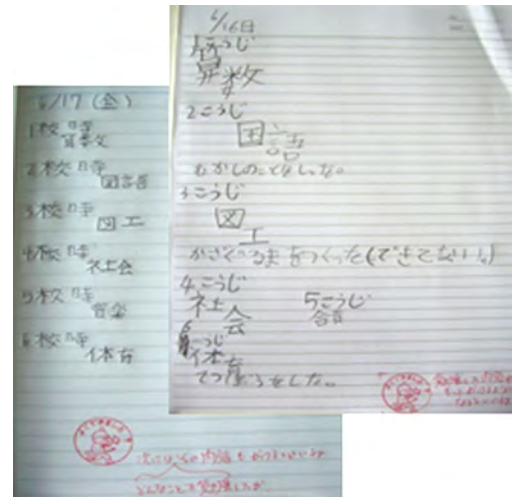 6/17 (金)
1校時
算数
2校時
国語
3校時
図工
4校時
社会
5校時
音楽
6校時
体育
次には、その内容も
どんなことを勉強したか
6/16日
1こうじ
算数
2こうじ
国語
むかしのことをしった。
3こうじ
図工
かざぐるまをつくった(できてない!。)
4こうじ
社会
5こうじ
6こうじ
体育
てつぼうをした。